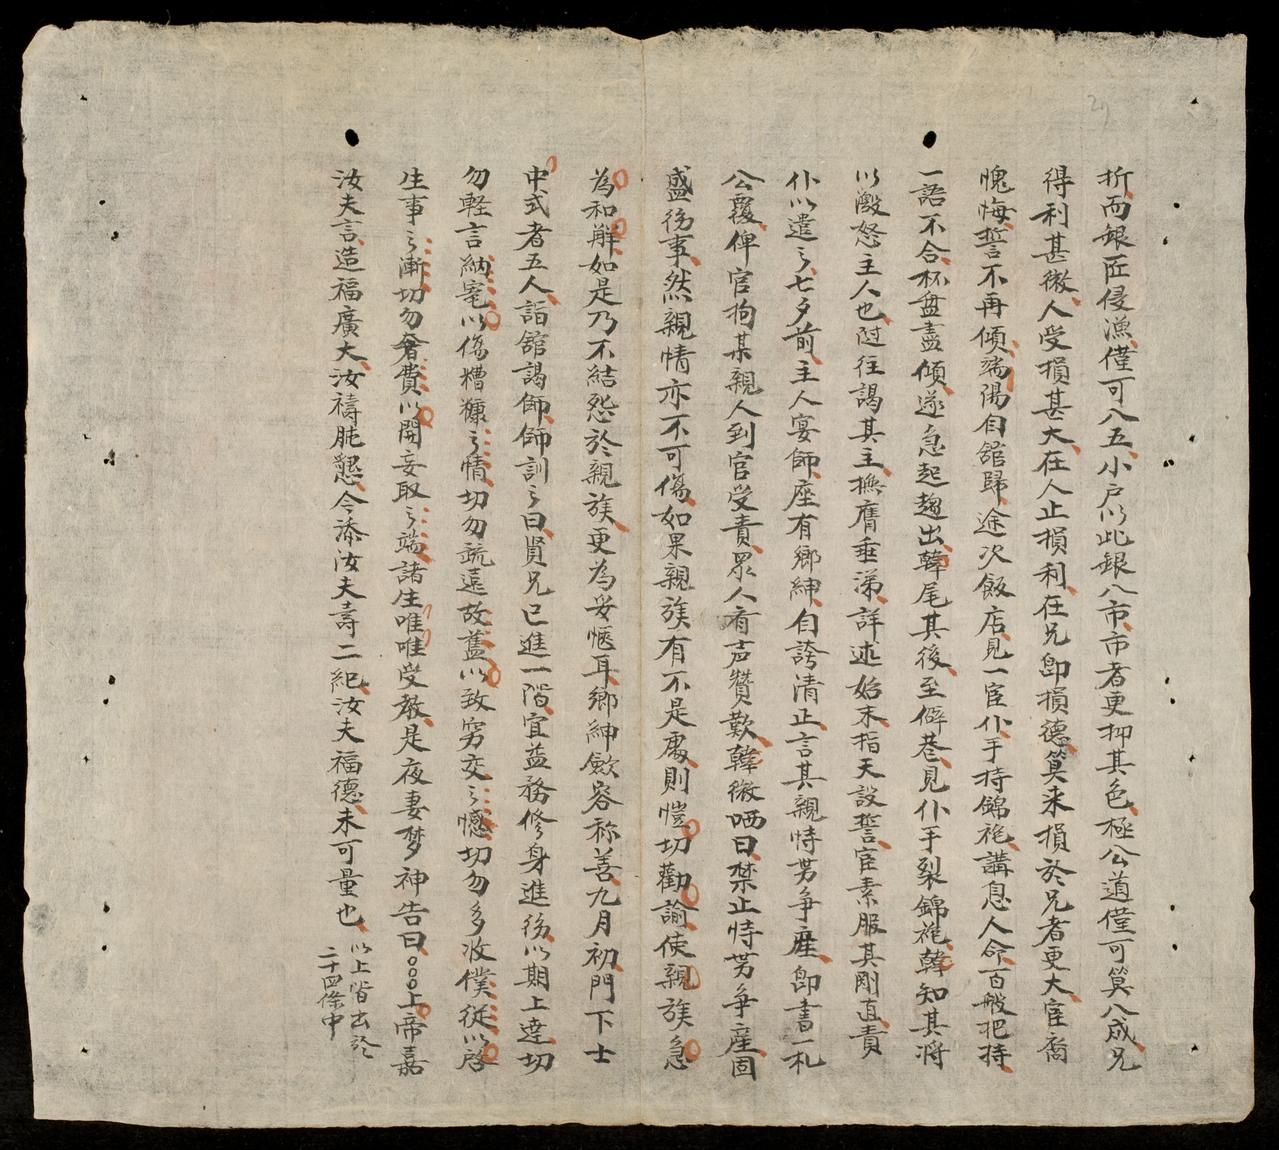 折而銀匠侵漁僅可八五小戶以此銀入市市者更抑其色極公道僅可算八成兄
得利甚微人受損甚大在人止損利在兄即損德算来損於兄者更大宦喬
愧悔誓不再傾端陽自舘歸途次飯店見一宦仆手持錦袍講息人命百般把持
一語不合杯盘盡傾遂急起趨出韓尾其後至僻巷見仆手裂錦袍韓知其将
以激怒主人也过往謁其主撫膺垂涕詳述始末指天設誓宦素服其剛直責
仆以遣之七夕前主人宴師座有鄉紳自誇清正言其親恃势争產即書一札
公覆俾官拘某親人到官受責眾人有声贊歎韓微哂曰禁止恃势争產固
盛徳事然親情亦不可傷如果親族有不是處則愷切勸諭使親族急
為和解如是乃不結怨於親族更為妥愜耳鄉紳斂容称善九月初門下士
中式者五人詣舘謁師師訓之曰贤兄已進一階宜益務修身進徳以期上達切
勿軽言納寵以傷糟糠之情切勿疏遠故舊以致窮交之憾切勿多收僕從以啓
生事之漸切勿奢費以開妄取之端諸生唯唯受教是夜妻梦神告曰○○○上帝嘉
汝夫言造福廣大汝禱肫懇今添汝夫壽二紀汝夫福德未可量也
以上皆出於
二十四條中
29